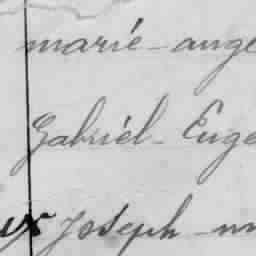 marié - ange
Gabriél - Euge
Joséph - m